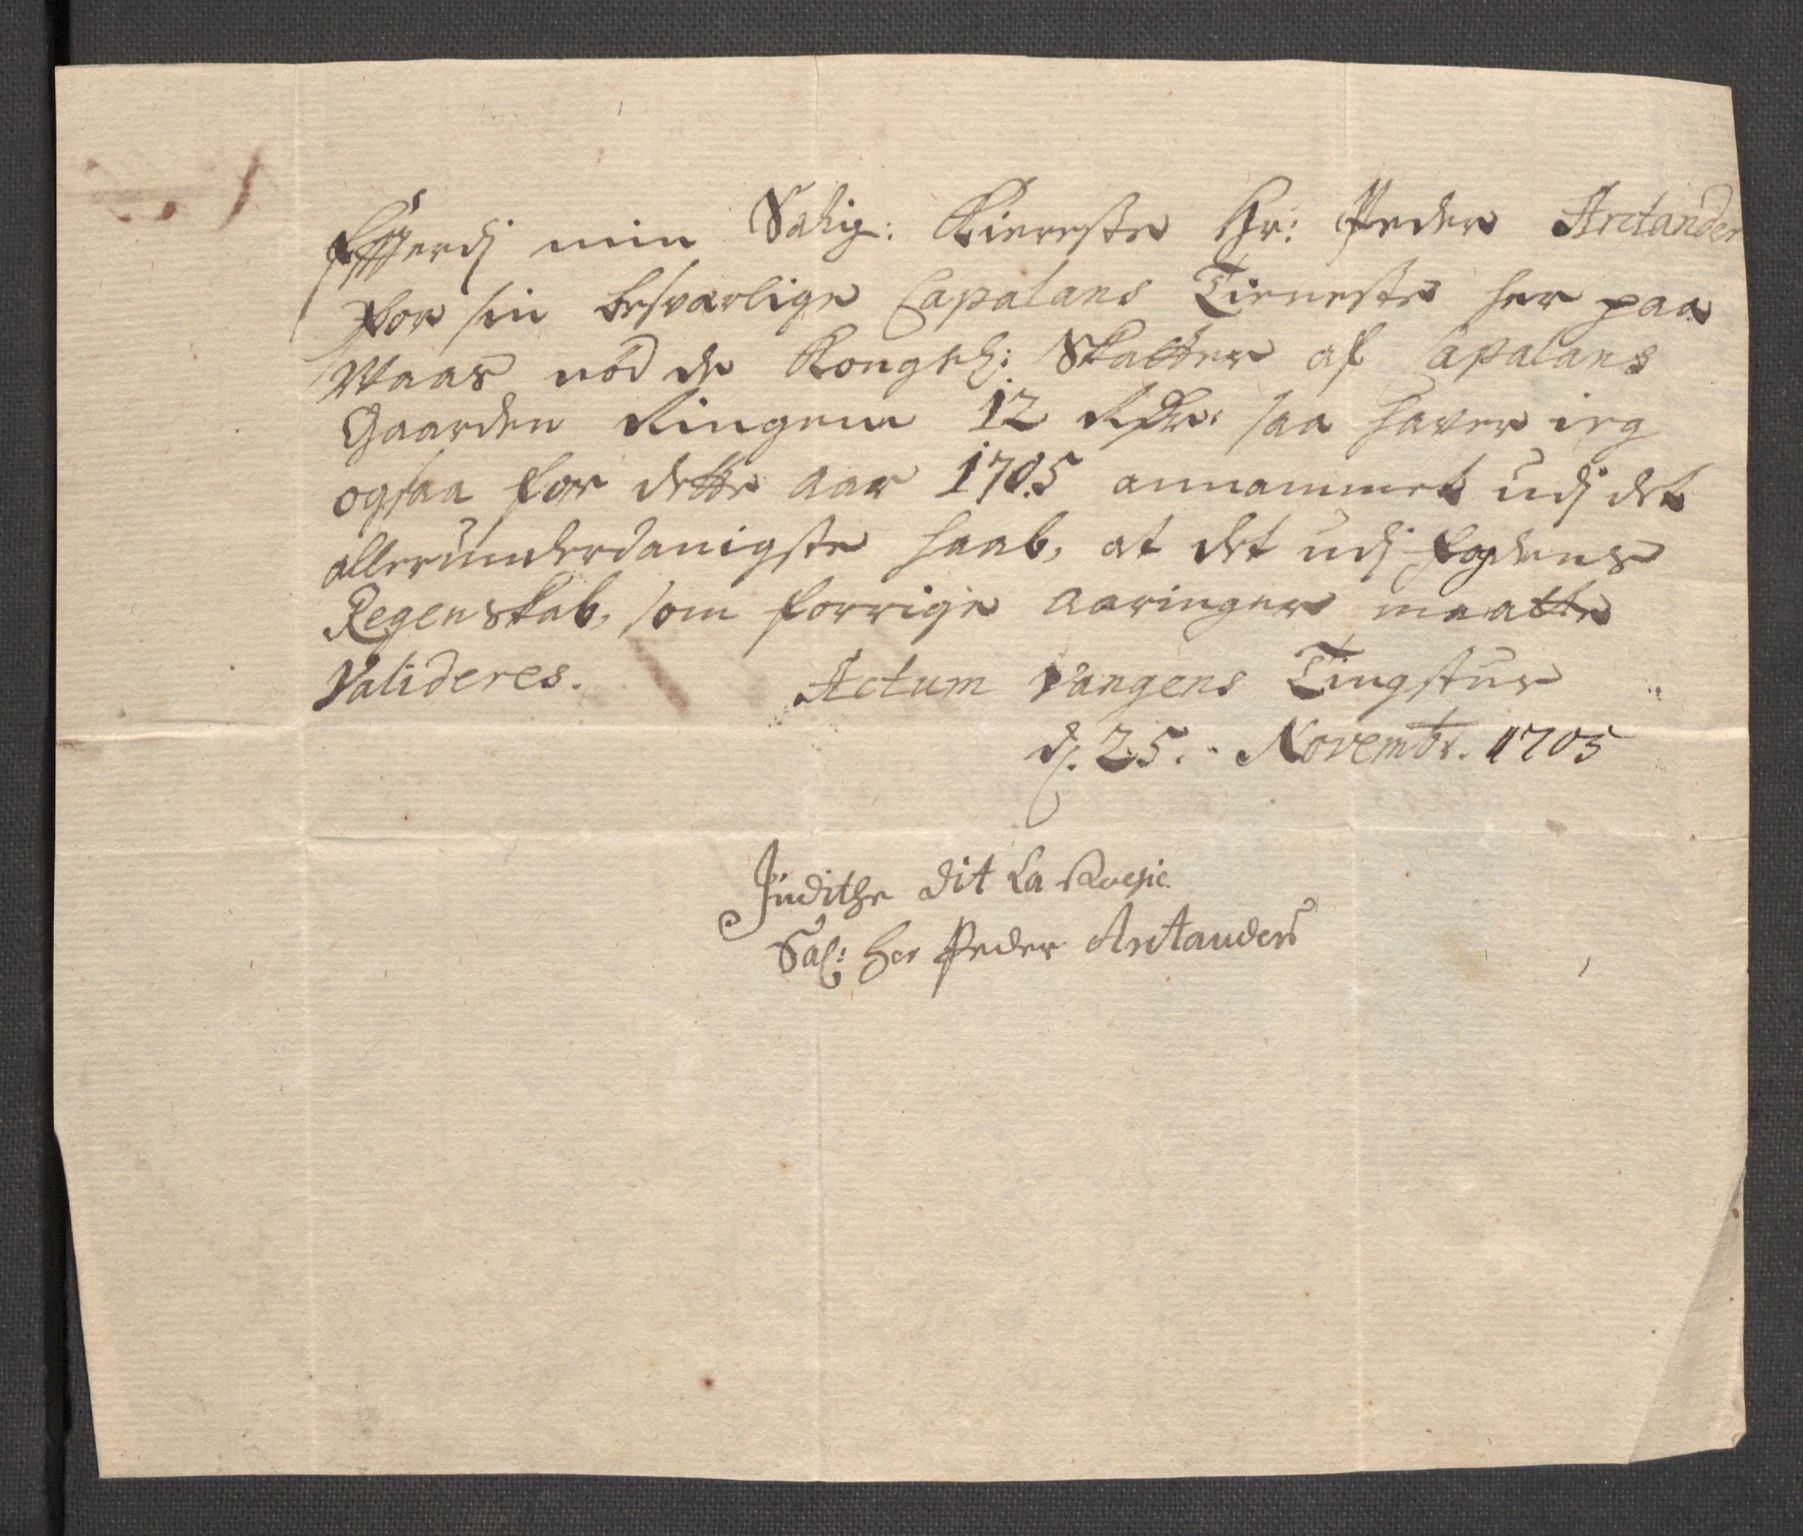 Effterdj min Salig: Kiereste Hr: Peder Arctander
for sin besværlige Capalans Tieneste her paa
Waas nød de Kongel: Skatter af Capalans
Gaarden Ringem 12 Rdr: saa haver ieg
ogsaa for dette aar 1705 annammet udj det
allerunderdanigste haab, at det udj fogdens
Regenskab, som forrige aaringer maatte
Valideres. Actum Vangens Tingstue
d. 25. Novembr. 1705
Judithe dit La
Sal: her Peder Arctanders